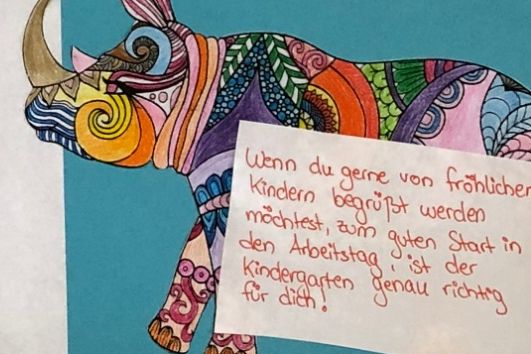 Wenn du gerne von fröhlichen
Kindern begrüßt werden
möchtest, zum guten Start in
den Arbeitstag, ist der
Kindergarten genau richtig
für dich!